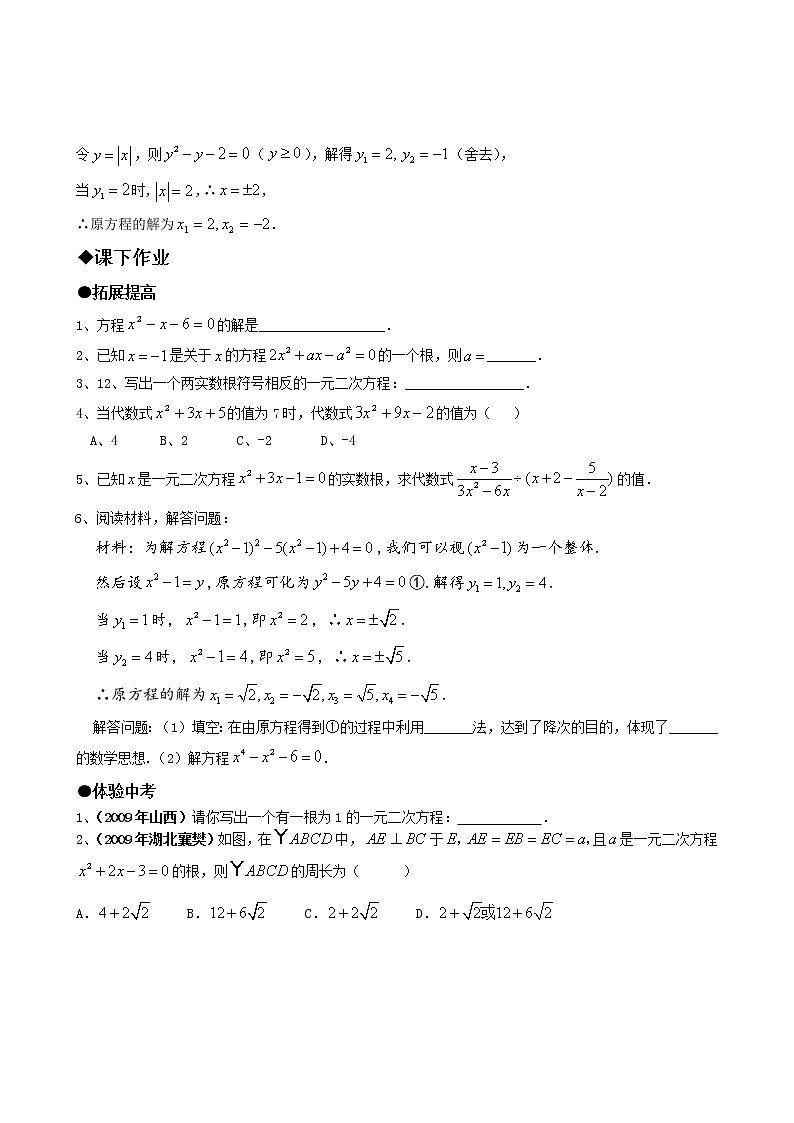 令 y = |x| ,则 y² − y − 2 = 0 ( y ≥ 0 ),解得 y₁ = 2, y₂ = −1 (舍去),
当 y₁ = 2 时, |x| = 2 ,∴ x = ±2 ,
∴原方程的解为 x₁ = 2, x₂ = −2 .
◆课下作业
●拓展提高
1、方程 x² − x − 6 = 0 的解是__________________.
2、已知 x = −1 是关于 x 的方程 2x² + ax − a² = 0 的一个根,则 a = _______.
3、12、写出一个两实数根符号相反的一元二次方程:_________________.
4、当代数式 x² + 3x + 5 的值为 7 时,代数式 3x² + 9x − 2 的值为( )
A、4 B、2 C、-2 D、-4
5、已知 x 是一元二次方程 x² + 3x − 1 = 0 的实数根,求代数式 (x − 3)/(3x² − 6x) ÷ (x + 2 − 5/(x − 2)) 的值.
6、阅读材料,解答问题:
材料: 为解方程 (x² − 1)² − 5(x² − 1) + 4 = 0 ,我们可以视 (x² − 1) 为一个整体.
然后设 x² − 1 = y ,原方程可化为 y² − 5y + 4 = 0 ①.解得 y₁ = 1, y₂ = 4 .
当 y₁ = 1 时, x² − 1 = 1 ,即 x² = 2 , ∴ x = ±√2 .
当 y₂ = 4 时, x² − 1 = 4 ,即 x² = 5 , ∴ x = ±√5 .
∴原方程的解为 x₁ = √2, x₂ = −√2, x₃ = √5, x₄ = −√5 .
解答问题:(1)填空:在由原方程得到①的过程中利用_______法,达到了降次的目的,体现了_______
的数学思想.(2)解方程 x⁴ − x² − 6 = 0 .
●体验中考
1、(2009年山西)请你写出一个有一根为 1 的一元二次方程:____________.
2、(2009年湖北襄樊)如图,在 Y ABCD 中, AE ⊥ BC 于 E, AE = EB = EC = a, 且 a 是一元二次方程
x² + 2x − 3 = 0 的根,则 Y ABCD 的周长为( )
A. 4 + 2√2 B. 12 + 6√2 C. 2 + 2√2 D. 2 + √2或12 + 6√2